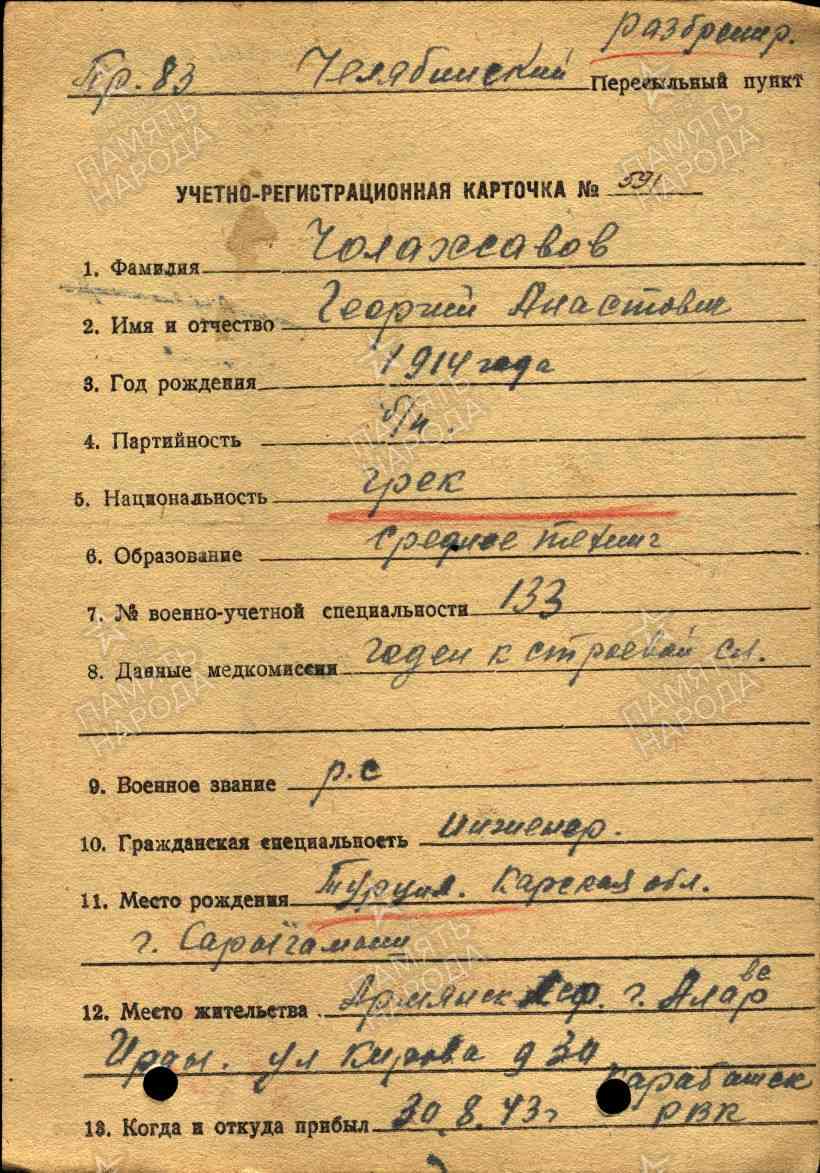 разбронир.
Пр. 83 Челябинский Пересыльный пункт
УЧЕТНО-РЕГИСТРАЦИОННАЯ КАРТОЧКА № 591
1. Фамилия Чолахсавов
2. Имя и отчество Георгий Анастович
3. Год рождения 1914 года
4. Партийность б/п.
5. Национальность грек
6. Образование среднее технич
7. № военно-учетной специальности 133
8. Данные медкомиссии годен к строевой сл.
9. Военное звание р.с
10. Гражданская специальность инженер.
11. Место рождения Турция. Карская обл.
г. Сарыгамыш
12. Место жительства Армянск г.
ул Кирова д 30
Карабашск
13. Когда и откуда прибыл 30.8.43г РВК
ПАМЯТЬ НАРОДА
ПАМЯТЬ НАРОДА
ПАМЯТЬ НАРОДА
ПАМЯТЬ НАРОДА
ПАМЯТЬ НАРОДА
ПАМЯТЬ НАРОДА